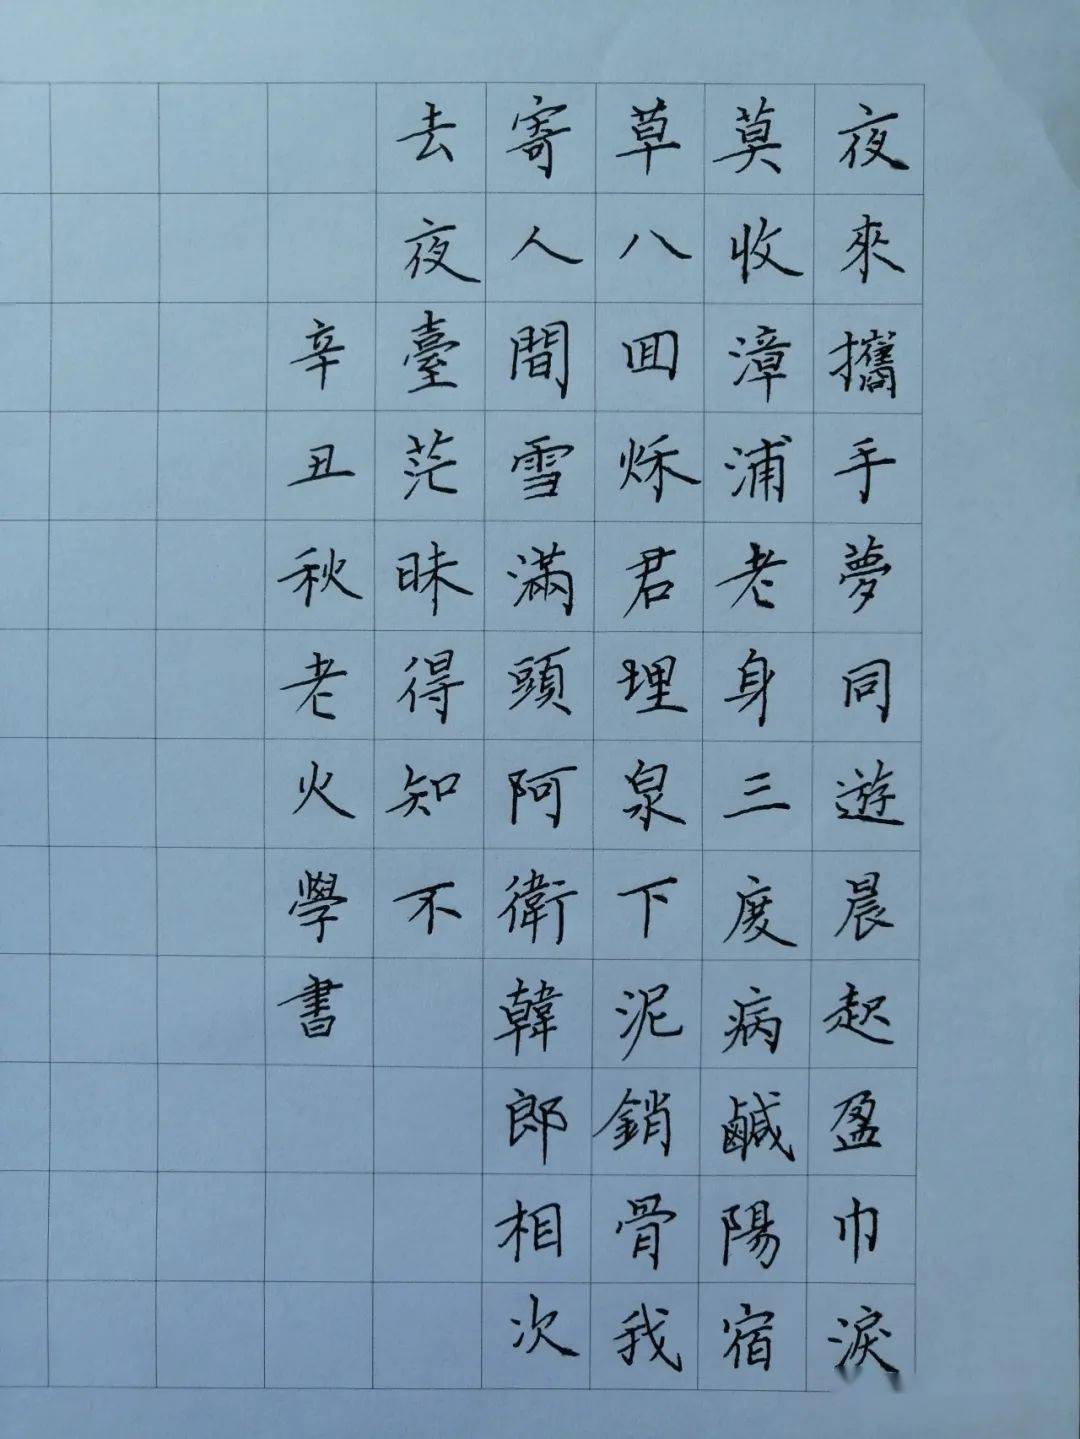 夜來攜手夢同遊晨起盈巾淚
莫收漳浦老身三度病鹹陽宿
草八回烁君埋泉下泥銷骨我
寄人間雪滿頭阿衛韓郎相次
去夜臺茫昧得知不
辛丑秋老火學書